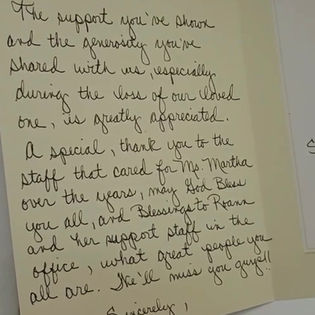 The support you've shown
and the generosity you've
shared with us, especially
during the loss of our loved
one, is greatly appreciated.
A special, thank you to the
staff that cared for Ms. Martha
over the years, may God Bless
you all, and Blessings to Roann
and her support staff in the
office, what great people you
all are. We'll miss you guys!!
Sincerely,